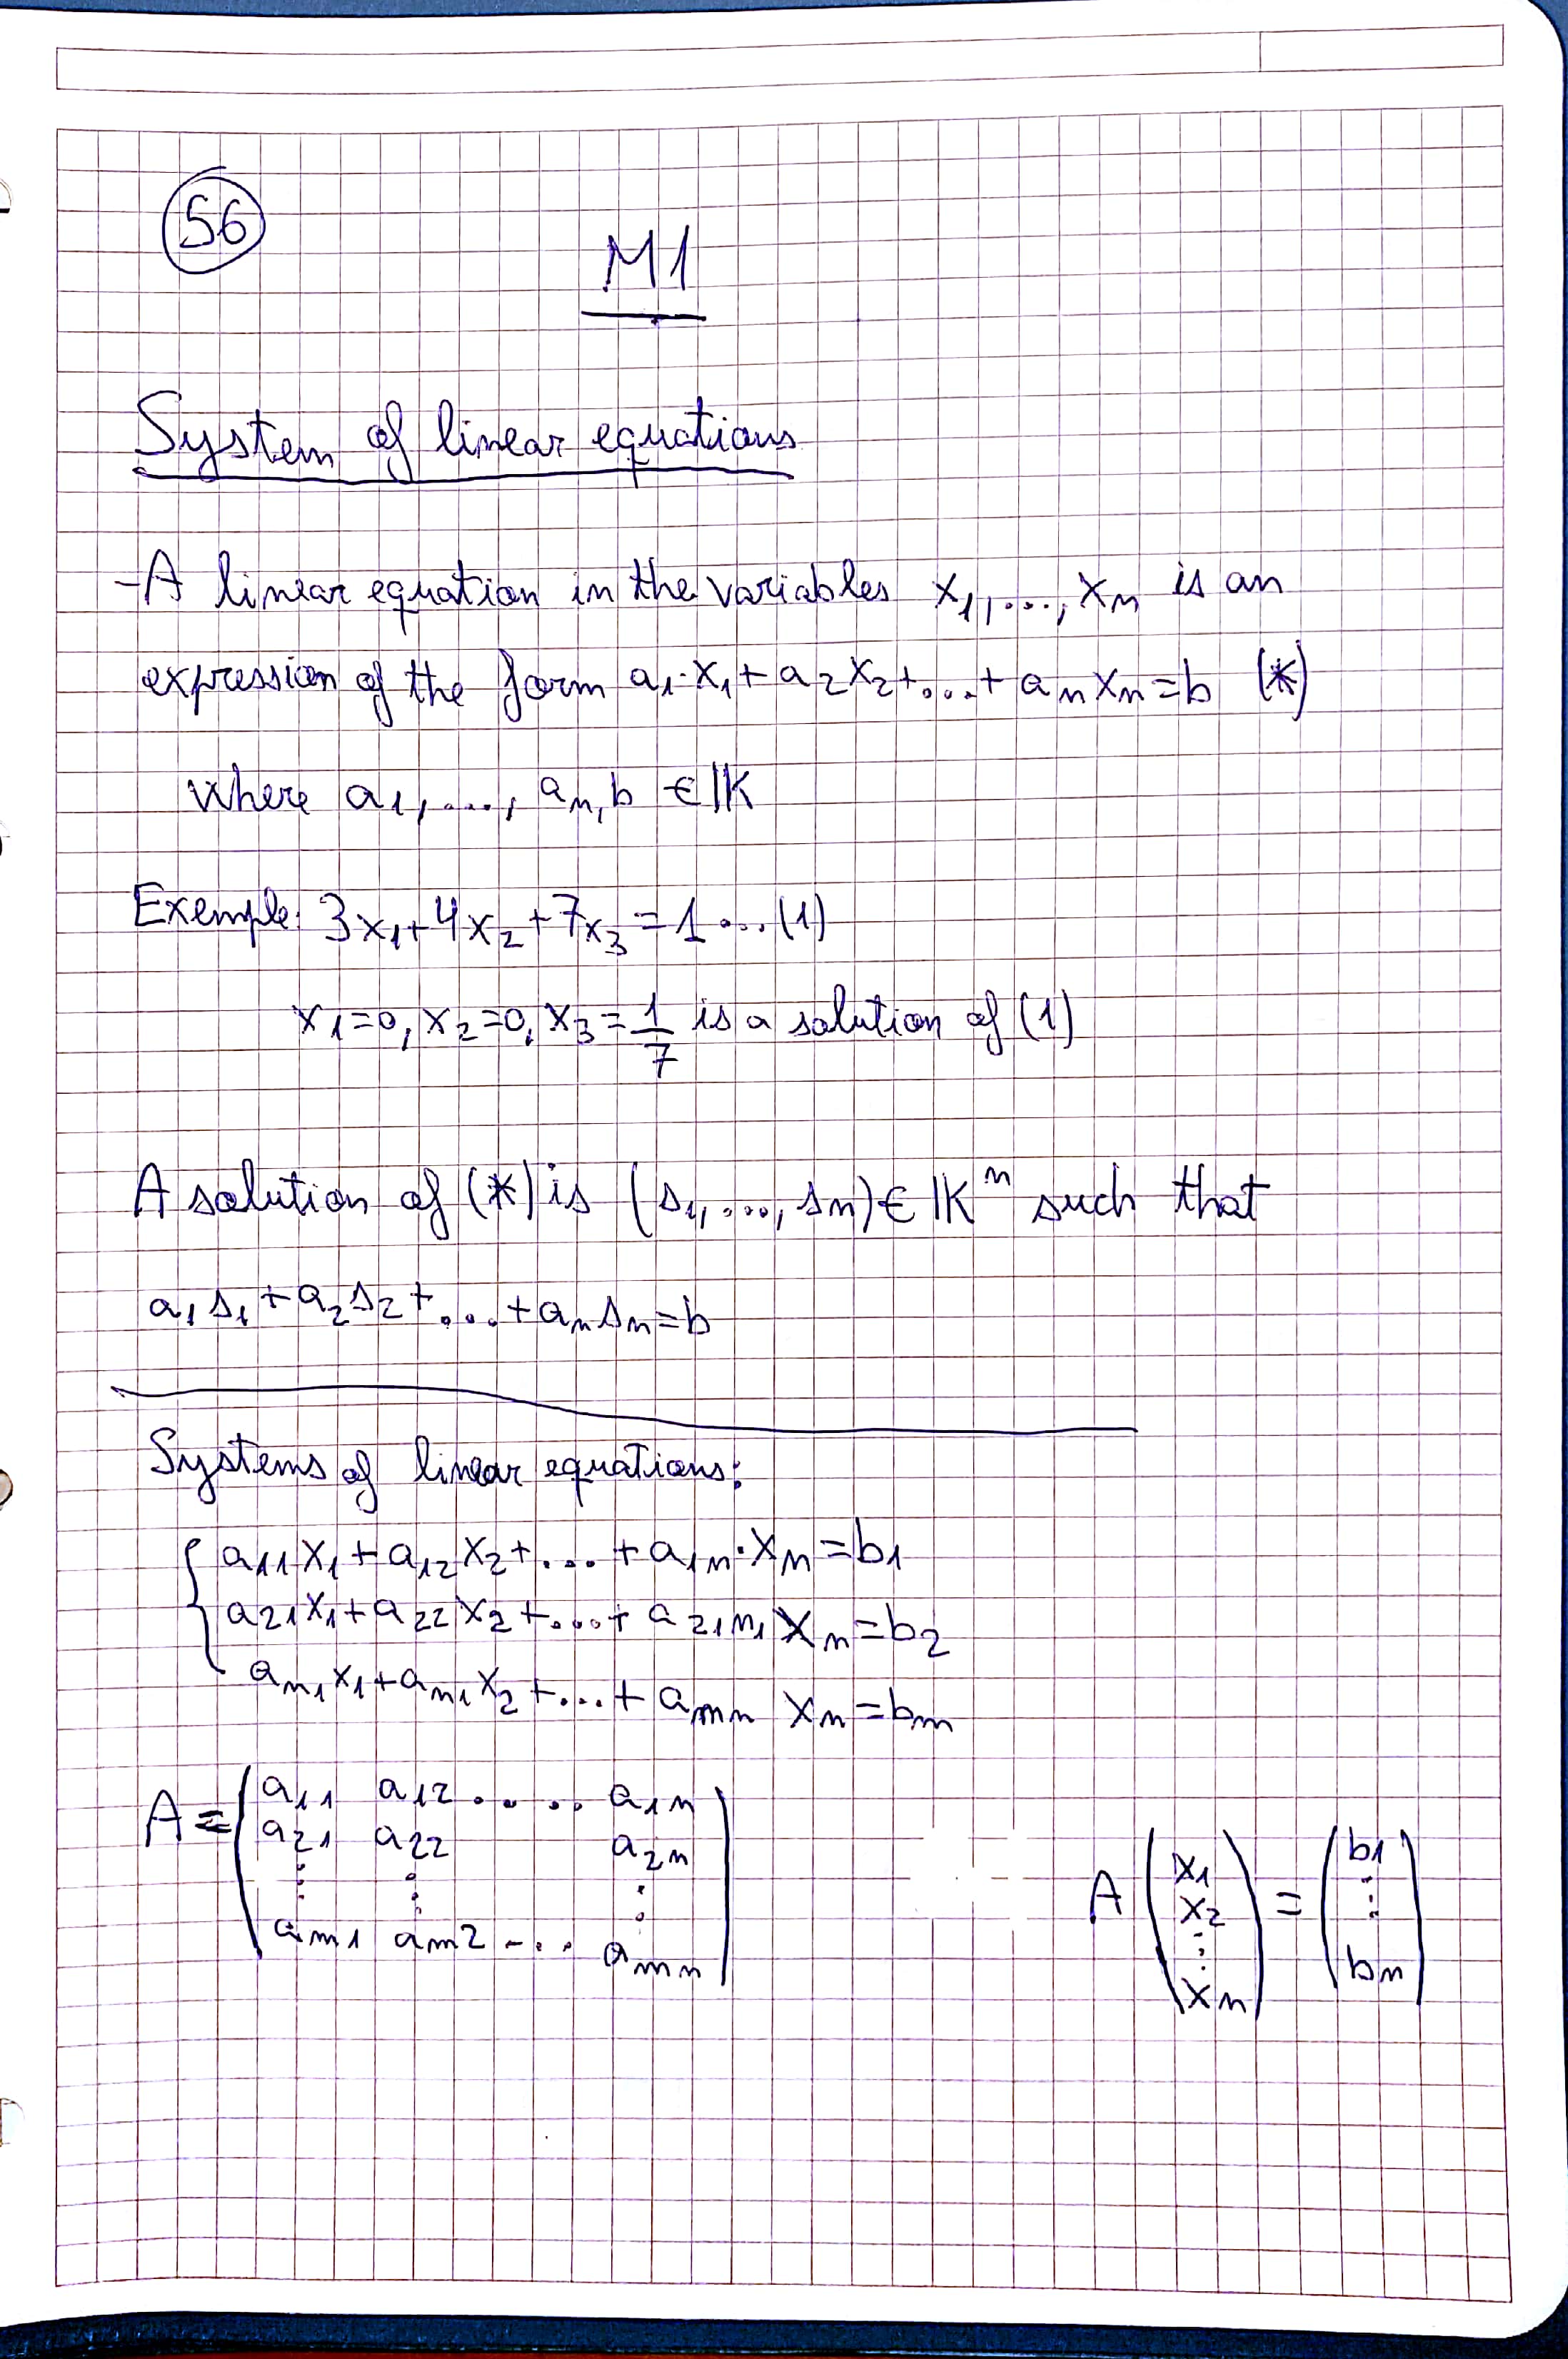 56
M1
System of linear equations
-A linear equation in the variables x₁,...,xₙ is an
expression of the form a₁·x₁+a₂x₂+...+aₙxₙ=b (*)
where a₁,...,aₙ,b ∈ 𝕂
Exemple: 3x₁+4x₂+7x₃=1...(1)
x₁=0, x₂=0, x₃=1/7 is a solution of (1)
A solution of (*) is (s₁,...,sₙ)∈𝕂ⁿ such that
a₁s₁+a₂s₂+...+aₙsₙ=b
Systems of linear equations:
{ a₁₁x₁+a₁₂x₂+...+a₁ₙ·xₙ=b₁
a₂₁x₁+a₂₂x₂+...+a₂₁ₙ₁xₙ=b₂
aₙ₁x₁+aₙ₁x₂+...+aₘₙ xₙ=bₘ
A = ( a₁₁ a₁₂ ..... a₁ₙ
a₂₁ a₂₂ a₂ₙ
⋮ ⋮ ⋮
aₘ₁ aₘ₂ ... aₘₙ )
A ( x₁
x₂
⋮
xₙ ) = ( b₁
⋮
bₙ )